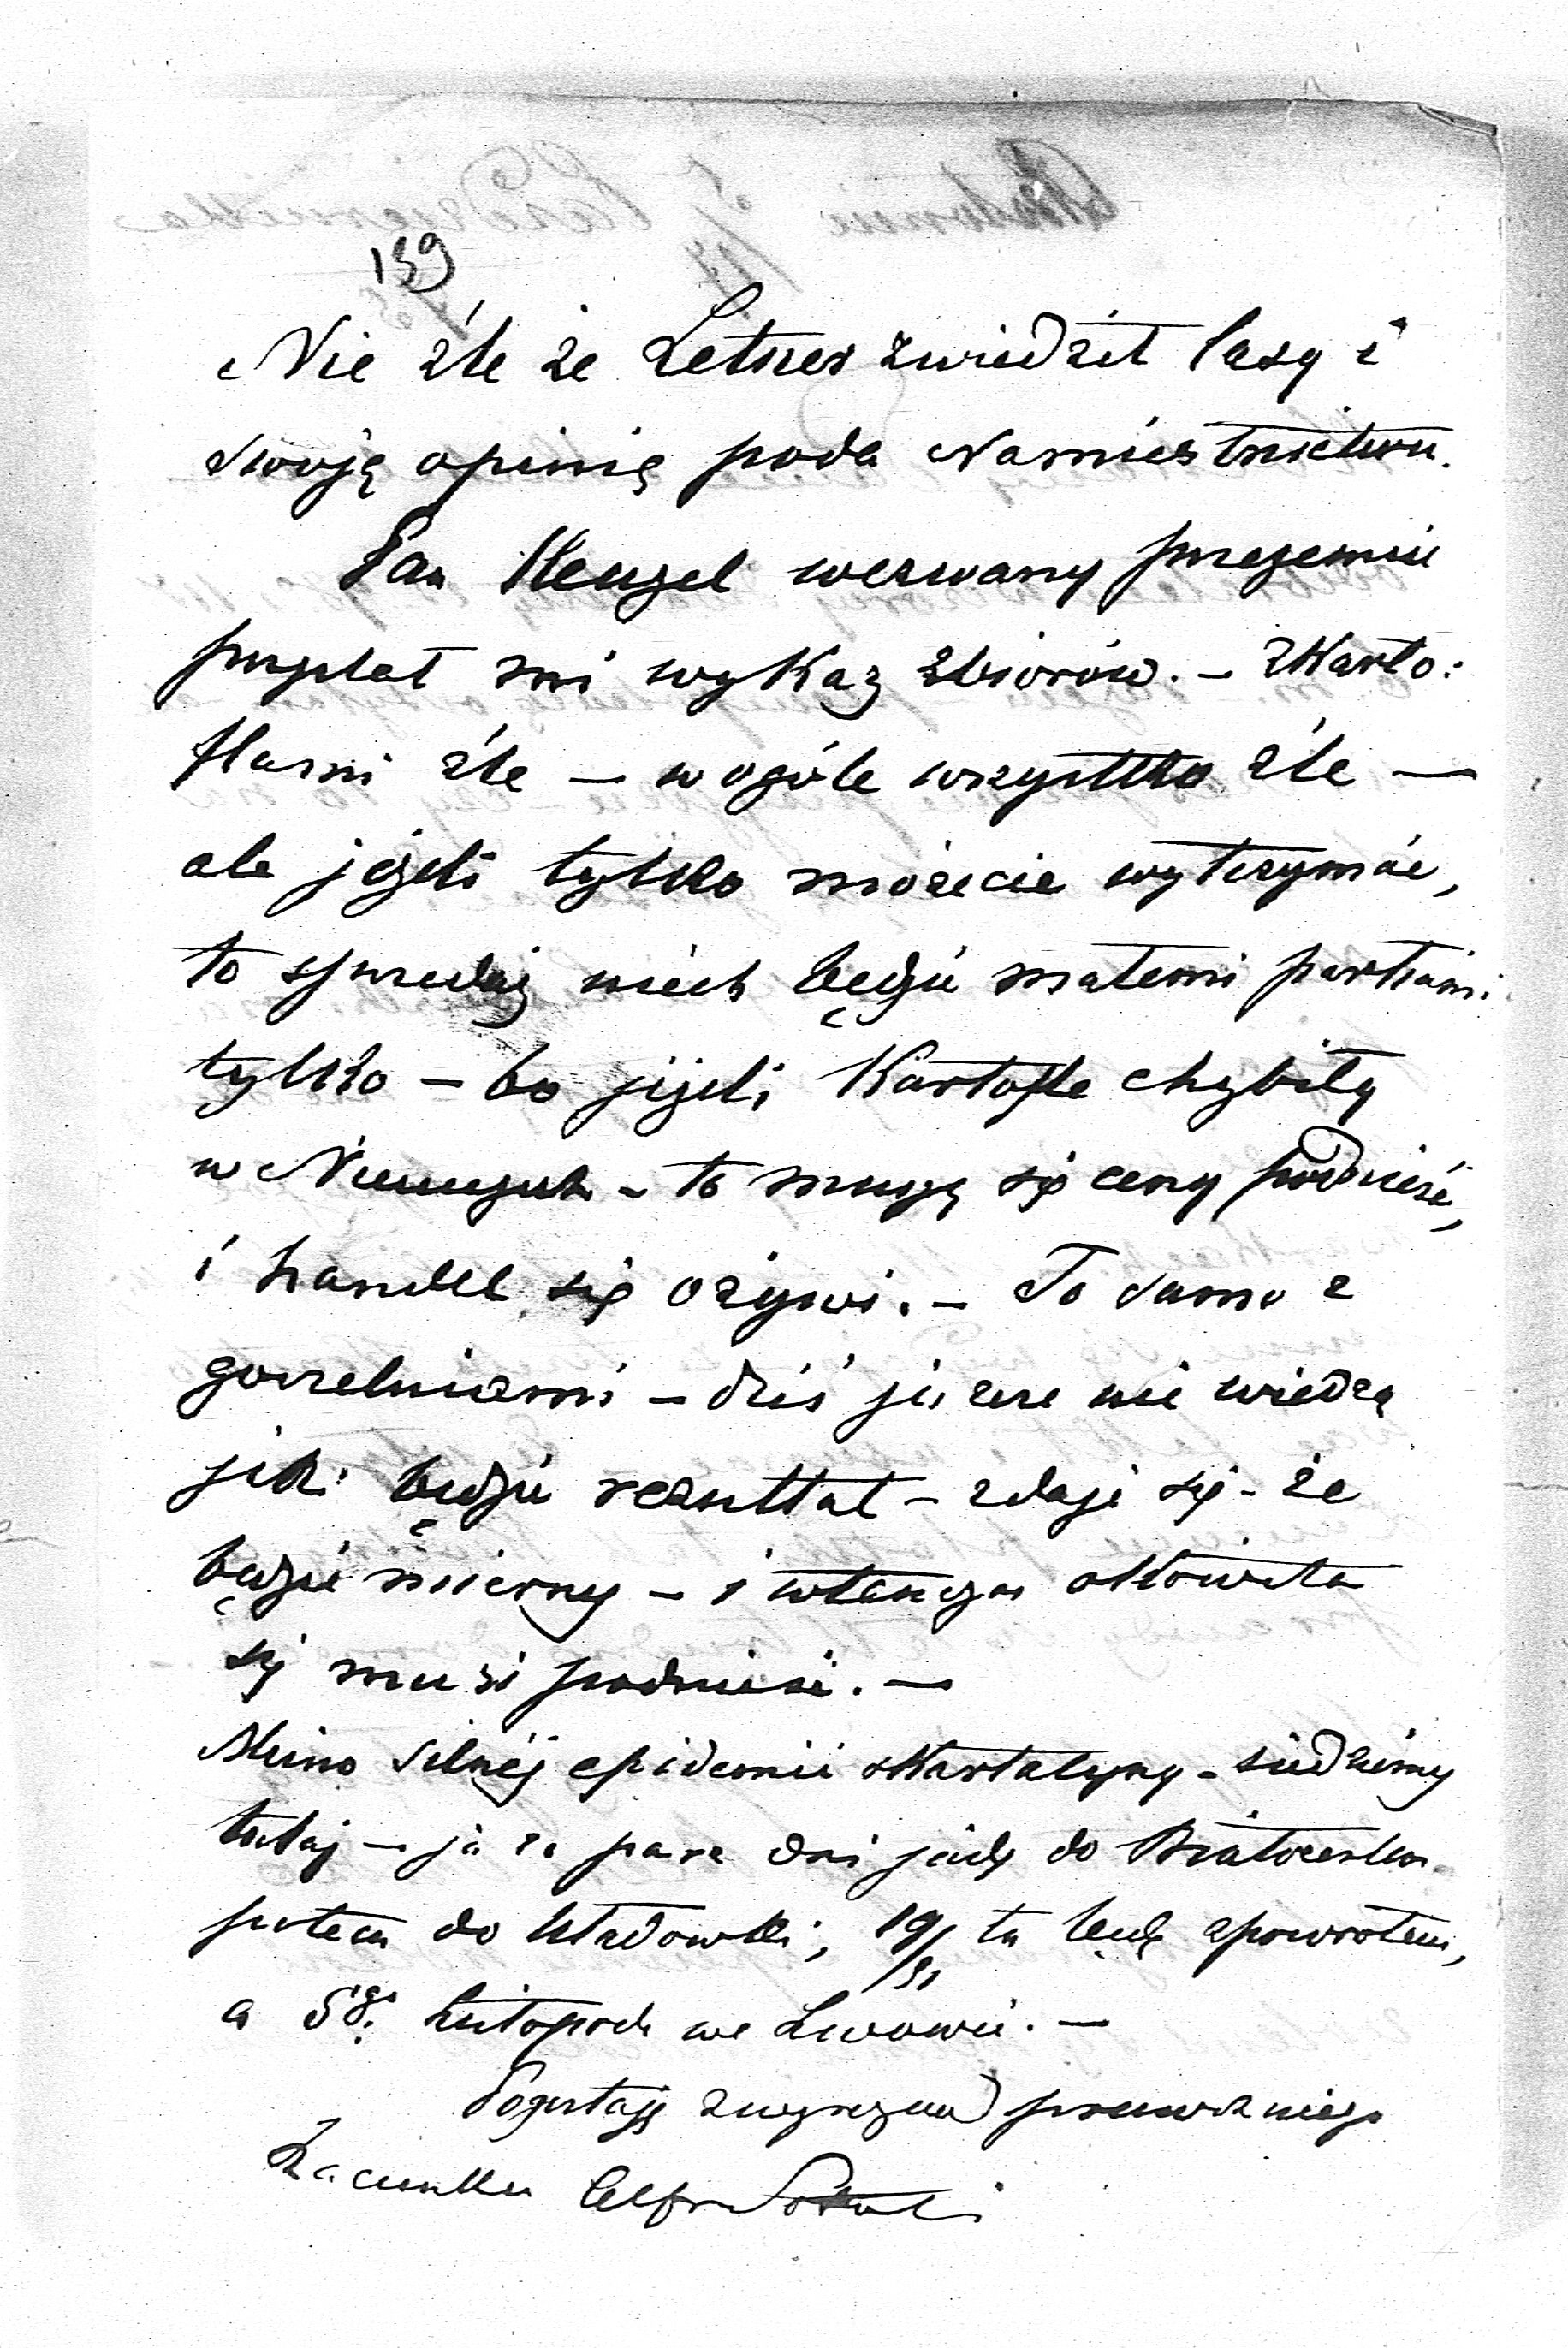 139
Nie źle że Letner zwiedził lasy i
swoję opinię poda Namiestnictwu.
Pan Henzel wezwany przezemnie
przysłał mi wykaz zbiorów. – Z Karto:
flami źle — wogóle wszystko źle —
ale jeżeli tylko możecie wytrzymać,
to sprzedaj niech będzie małemi partiami
tylko – bo jeżeli Kartofle chybiły
w Niemczech – to muszą się ceny podnieść,
i handel się ożywi. – To samo z
gorzelniami – dziś jeszcze nie wiedzą
jaki będzie rezultat – zdaje się – że
będzie mierny – i wtenczas okowita
się musi podnieść. —
Mimo silnéj epidemii szkarlatyny – siedzimy
tutaj — ja za parę dni jadę do
potem do Uladówki, 19/31 tu będę zpowrotem,
a 5go Listopada we Lwowie. —
Pozostaję z wyrazem prawdziwego
Szacunku Alfr Potocki